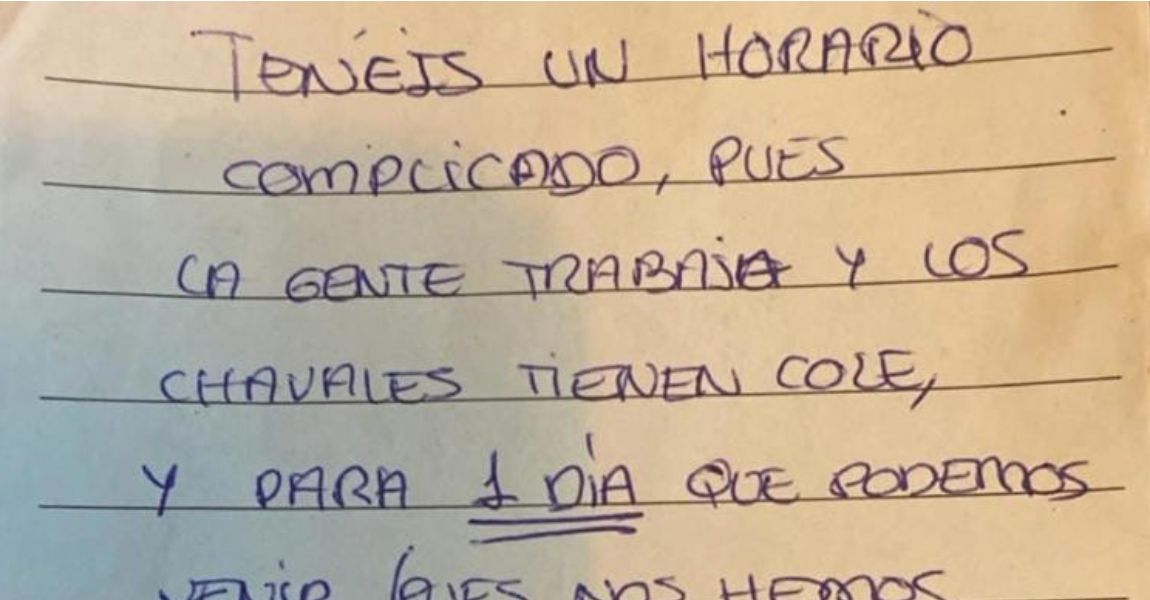 TENÉIS UN HORARIO
COMPLICADO, PUES
LA GENTE TRABAJA Y LOS
CHAVALES TIENEN COLE,
Y PARA 1 DÍA QUE PODEMOS
VENIR NOS HEMOS